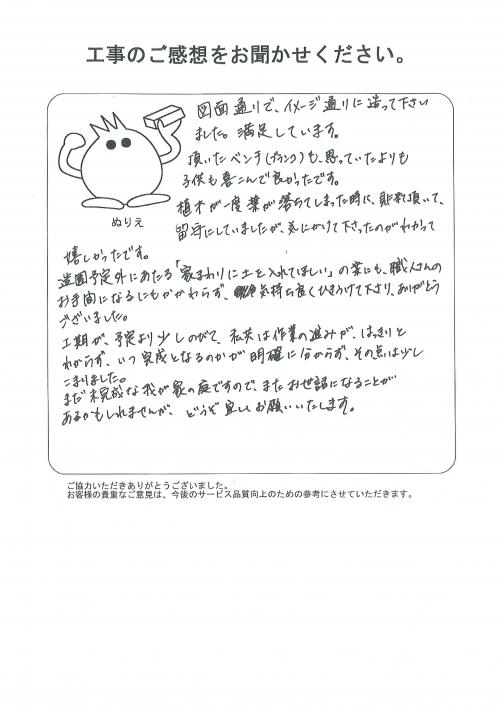 工事のご感想をお聞かせください。
図面通りで、イメージ通りに造って下さい
ました。満足しています。
頂いたベンチ(ブランコ)も、思っていたよりも
子供も喜こんで良かったです。
植木が一度葉が落ちてしまった時に、貼れて頂いて、
留守にしていましたが、気にかけて下さったのがわかって
ぬりえ
嬉しかったです。
造園予定外にあたる「家まわりに土を入れてほしい」の案にも、職人さんの
お手間になるにもかかわらず、気持ち良くひきうけて下さり、ありがとう
ございました。
工期が、予定より少しのびて、私共は作業の進みが、はっきりと
わからず、いつ完成となるのかが明確に分からず、その点は少し
こまりました。
まだ未完成な我が家の庭ですので、またお世話になることが
あるかもしれませんが、どうぞ宜しくお願いいたします。
ご協力いただきありがとうございました。
お客様の貴重なご意見は、今後のサービス品質向上のための参考にさせていただきます。